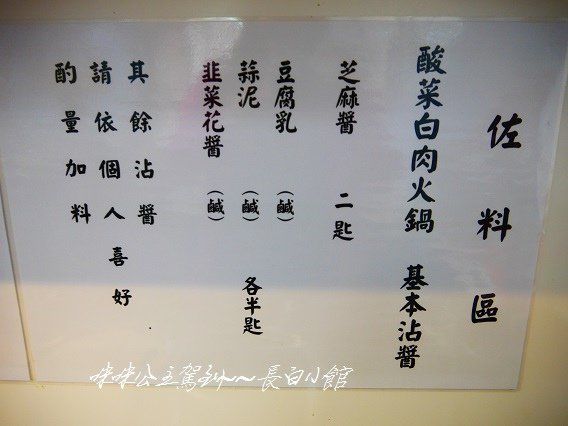 佐料區
酸菜白肉火鍋 基本沾醬
芝麻醬 二匙
豆腐乳 (鹹)
蒜泥 (鹹) 各半匙
韭菜花醬 (鹹)
其餘沾醬
請依個人喜好
酌量加料
咪咪公主駕到~~長白小館